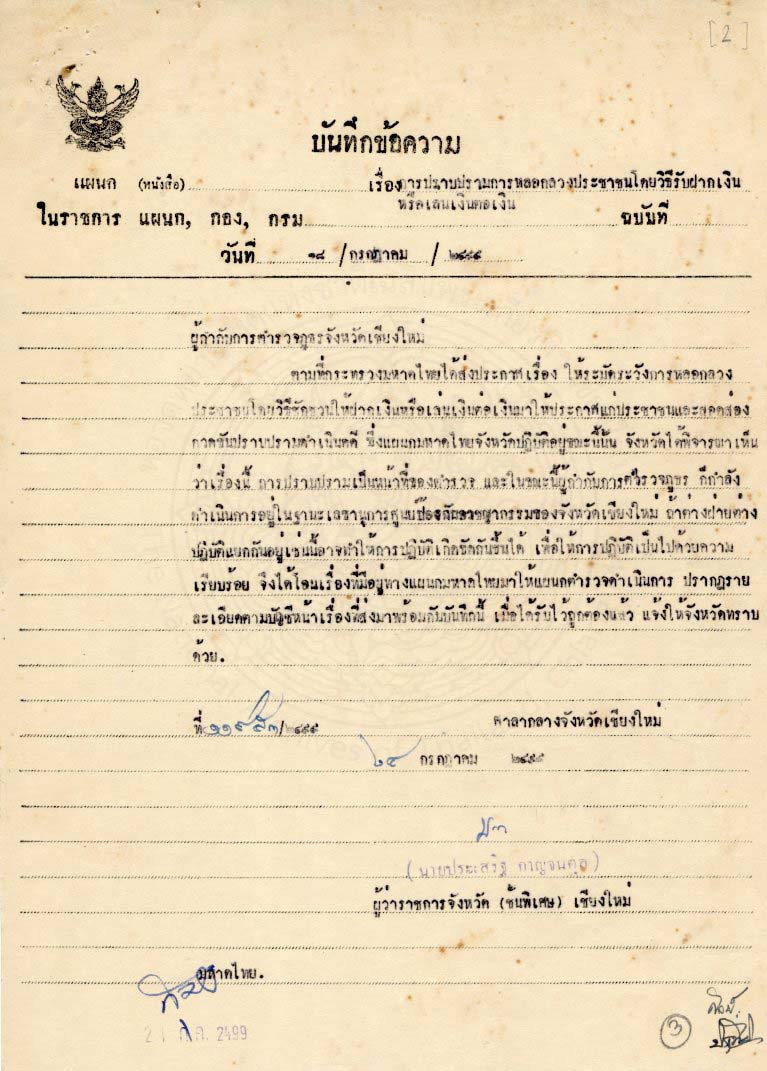 [2]
บันทึกข้อความ
แผนก (หนังสือ) เรื่อง การปราบปรามการหลอกลวงประชาชนโดยวิธีรับฝากเงิน
หรือเล่นเงินต่อเงิน
ในราชการ แผนก, กอง, กรม ฉบับที่
วันที่ ๑๘ / กรกฎาคม / ๒๔๙๙
ผู้กำกับการตำรวจภูธรจังหวัดเชียงใหม่
ตามที่กระทรวงมหาดไทยได้ส่งประกาศเรื่อง ให้ระมัดระวังการหลอกลวง
ประชาชนโดยวิธีชักชวนให้ฝากเงินหรือเล่นเงินต่อเงินมาให้ประกาศแก่ประชาชนและสอดส่อง
กวดขันปราบปรามดำเนินคดี ซึ่งแผนกมหาดไทยจังหวัดปฏิบัติอยู่ขณะนี้นั้น จังหวัดได้พิจารณาเห็น
ว่าเรื่องนี้ การปราบปรามเป็นหน้าที่ของตำรวจ และในขณะนี้ผู้กำกับการตำรวจภูธร ก็กำลัง
ดำเนินการอยู่ในฐานะเลขานุการศูนย์ป้องกันอาชญากรรมของจังหวัดเชียงใหม่ ถ้าต่างฝ่ายต่าง
ปฏิบัติแยกกันอยู่เช่นนี้อาจทำให้การปฏิบัติเกิดขัดกันขึ้นได้ เพื่อให้การปฏิบัติเป็นไปด้วยความ
เรียบร้อย จึงได้โอนเรื่องที่มีอยู่ทางแผนกมหาดไทยมาให้แผนกตำรวจดำเนินการ ปรากฏราย
ละเอียดตามบัญชีหน้าเรื่องที่ส่งมาพร้อมกับบันทึกนี้ เมื่อได้รับไว้ถูกต้องแล้ว แจ้งให้จังหวัดทราบ
ด้วย.
ที่ /๒๔๙๙ ศาลากลางจังหวัดเชียงใหม่
๒๔ กรกฎาคม ๒๔๙๙
(นายประเสริฐ กาญจนดุล)
ผู้ว่าราชการจังหวัด (ชั้นพิเศษ) เชียงใหม่
มหาดไทย.
ก.ค. 2499
3